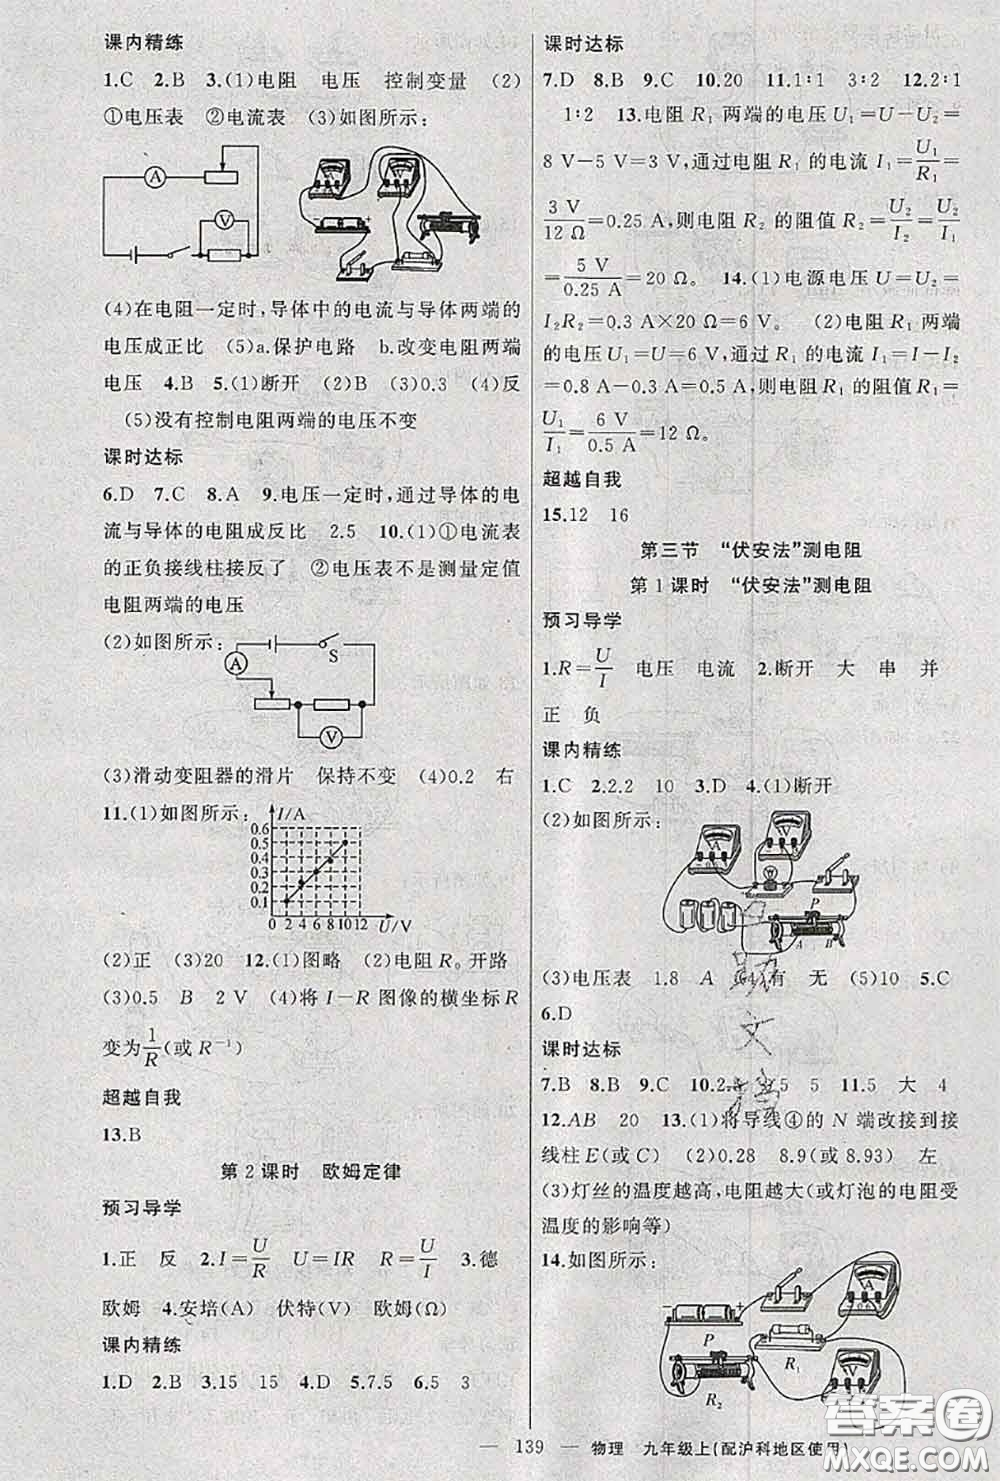 课内精练
1.C 2.B 3.(1)电阻 电压 控制变量 (2)
①电压表 ②电流表 (3)如图所示:
A
V
(4)在电阻一定时,导体中的电流与导体两端的
电压成正比 (5)a.保护电路 b.改变电阻两端
电压 4.B 5.(1)断开 (2)B (3)0.3 (4)反
(5)没有控制电阻两端的电压不变
课时达标
6.D 7.C 8.A 9.电压一定时,通过导体的电
流与导体的电阻成反比 2.5 10.(1)①电流表
的正负接线柱接反了 ②电压表不是测量定值
电阻两端的电压
(2)如图所示:
A
S
V
(3)滑动变阻器的滑片 保持不变 (4)0.2 右
11.(1)如图所示:
I/A
0.6
0.5
0.4
0.3
0.2
0.1
0 2 4 6 8 10 12 U/V
(2)正 (3)20 12.(1)图略 (2)电阻R₀开路
(3)0.5 B 2 V (4)将 I-R 图像的横坐标 R
变为1/R(或 R⁻¹)
超越自我
13.B
第2课时 欧姆定律
预习导学
1.正 反 2.I=U/R U=IR R=U/I 3.德
欧姆 4.安培(A) 伏特(V) 欧姆(Ω)
课内精练
1.D 2.B 3.15 15 4.D 5.7.5 6.5 3
课时达标
7.D 8.B 9.C 10.20 11.1∶1 3∶2 12.2∶1
1∶2 13.电阻 R₁ 两端的电压 U₁=U-U₂=
8 V-5 V=3 V,通过电阻 R₁ 的电流 I₁=U₁/R₁=
3 V/12 Ω=0.25 A,则电阻 R₂ 的阻值 R₂=U₂/I₂=U₂/I₁
=5 V/0.25 A=20 Ω。 14.(1)电源电压 U=U₂=
I₂R₂=0.3 A×20 Ω=6 V。 (2)电阻 R₁ 两端的
电压 U₁=U=6 V,通过电阻 R₁ 的电流 I₁=I-I₂
=0.8 A-0.3 A=0.5 A,则电阻 R₁ 的阻值 R₁=
U₁/I₁=6 V/0.5 A=12 Ω。
超越自我
15.12 16
第三节 “伏安法”测电阻
第1课时 “伏安法”测电阻
预习导学
1.R=U/I 电压 电流 2.断开 大 串 并
正 负
课内精练
1.C 2.2.2 10 3.D 4.(1)断开
(2)如图所示:
A
V
P
A B
(3)电压表 1.8 A (4)有 无 (5)10 5.C
6.D
课时达标
7.B 8.B 9.C 10.2.5 5 11.5 大 4
12.AB 20 13.(1)将导线④的 N 端改接到接
线柱 E(或 C) (2)0.28 8.9(或 8.93) 左
(3)灯丝的温度越高,电阻越大(或灯泡的电阻受
温度的影响等)
14.如图所示:
P
R₂
R₁
A
V
— 139 — 物理 九年级上(配沪科地区使用)
答案圈
MXQE.COM